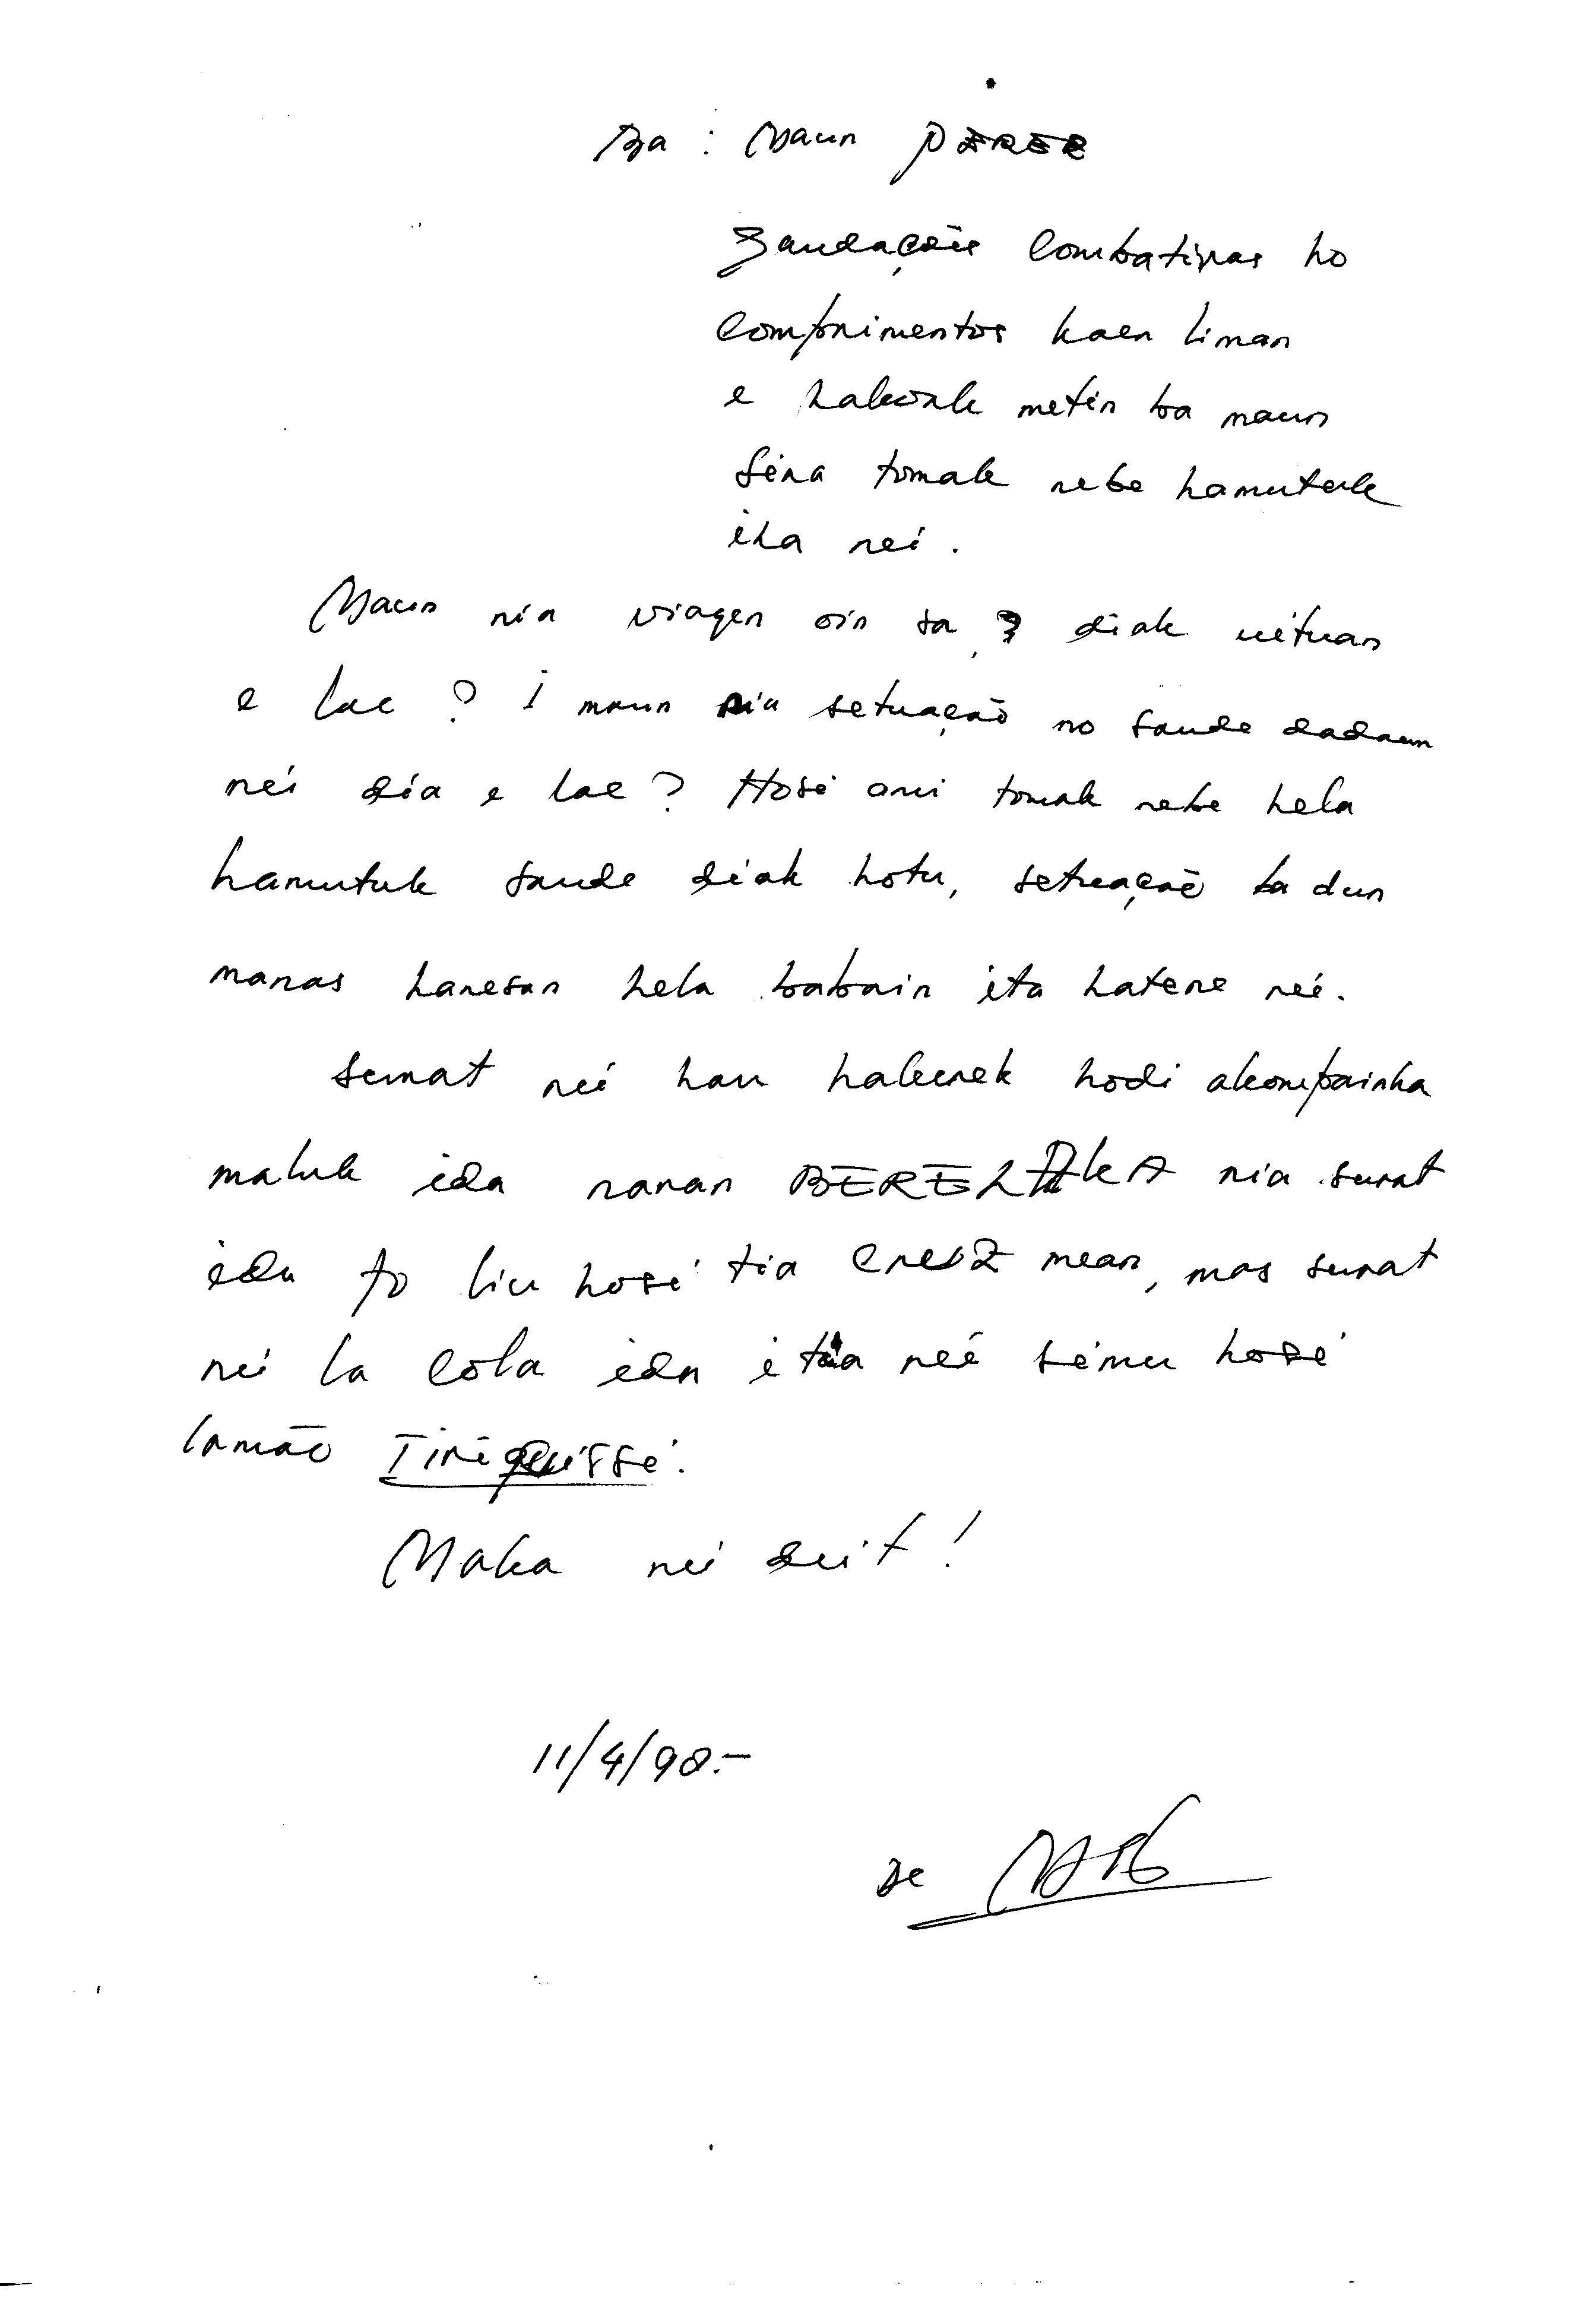 Ba : Maun PERER
Saudações Combativas ho
Comprimentos kaer liman
e hakoak metin ba maun
sira tomak nebe hamutuk
iha nei .
Maun nia viagen oin sa ? diak uituan
e lae ? I maun nia setuação no saude dadaun
nei dia e lae ? Hosi ami tomak nebe hela
hamutuk saude diak hotu, setuação ba dun
manas hanesan hela babain ita hatene nei.
Surat nei hau hakerek hodi akompainha
maluk ida naran BERELAKA nia surat
ida to liu hosi tia CRUZ mean, mas surat
nei la cola ida i tia neé simu hosi
lamão Iirequissé.
Maka nei deit !
11/4/98.-
de